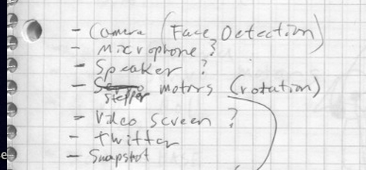 - Camera (Face Detection)
- Microphone ?
- Speaker ?
- stepper motors (rotation)
- Video Screen ?
- twitter
- Snapshot